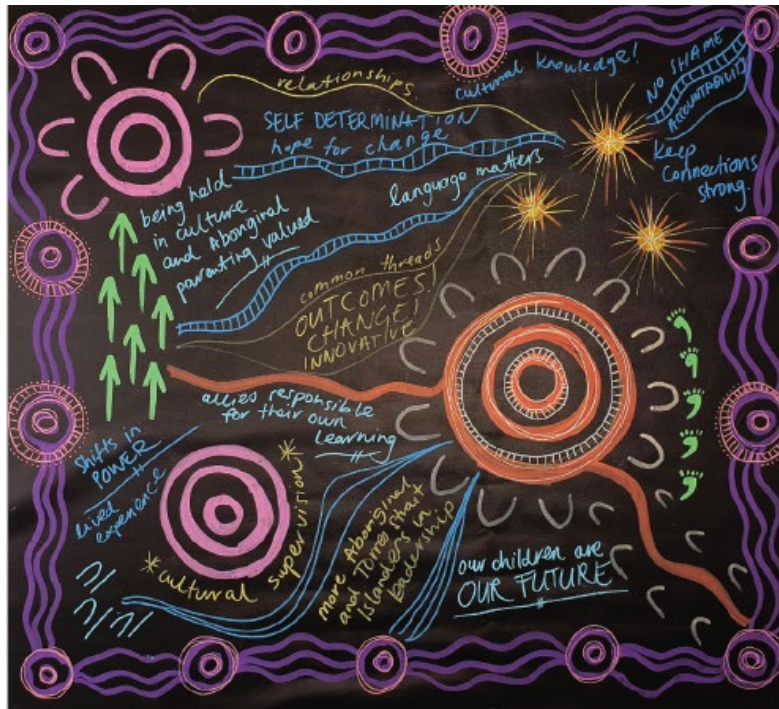 relationships
cultural knowledge!
NO SHAME
ACCOUNTABILITY
SELF DETERMINATION
hope for change
keep
connections
strong.
language matters
being held
in culture
and Aboriginal
parenting valued
common threads
OUTCOMES!
CHANGE!
INNOVATIVE
allies responsible
for their own
learning
Shifts in
POWER
lived
experience
*cultural supervision*
more Aboriginal
and Torres Strait
Islanders in
leadership
our children are
OUR FUTURE